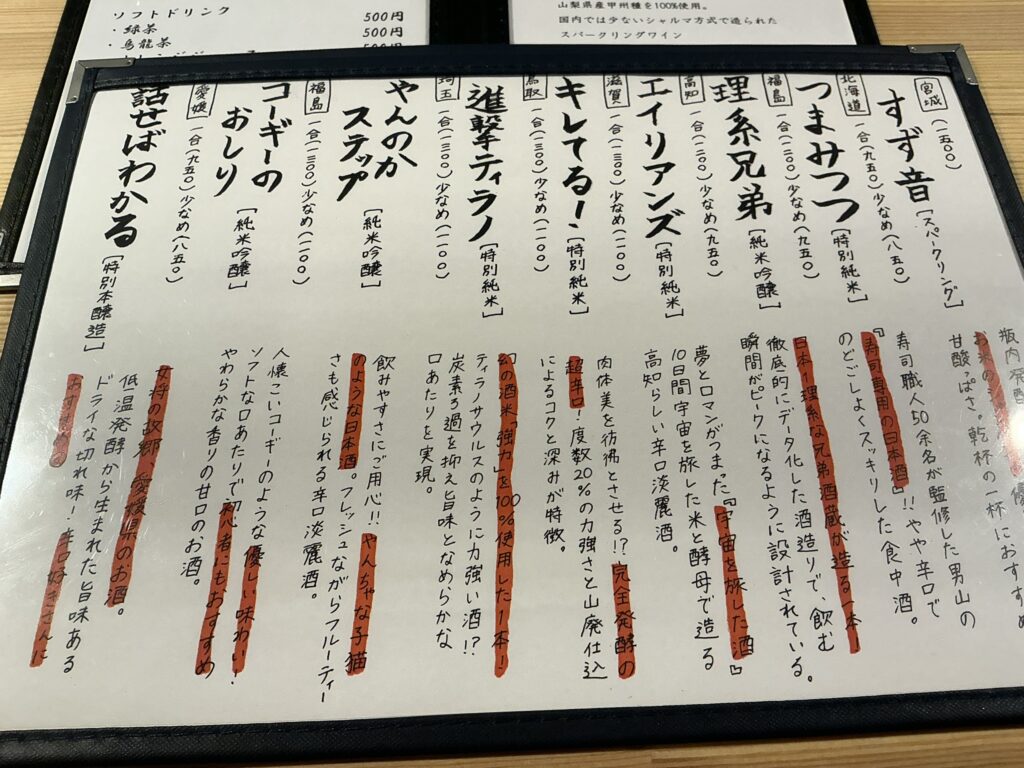 ソフトドリンク
・緑茶 500円
・烏龍茶 500円
山梨県産甲州種を100%使用。
国内では少ないシャルマ方式で造られた
スパークリングワイン
宮城 (一五〇〇)
すず音 [スパークリング]
お米の
甘酸っぱさ。乾杯の一杯におすすめ
北海道 一合(九五〇)少なめ(八五〇)
つまみつつ [特別純米]
寿司職人50余名が監修した男山の
『寿司専用の日本酒』!!やや辛口で
のどごしよくスッキリした食中酒。
福島 一合(一二〇〇)少なめ(九五〇)
理系兄弟 [純米吟醸]
日本1理系な兄弟酒蔵が造る一本!
徹底的にデータ化した酒造りで、飲む
瞬間がピークになるように設計されている。
高知 一合(一二〇〇)少なめ(九五〇)
エイリアンズ [特別純米]
夢とロマンがつまった『宇宙を旅した酒』
10日間宇宙を旅した米と酵母で造る
高知らしい辛口淡麗酒。
滋賀 一合(一三〇〇)少なめ(一一〇〇)
キレてる! [特別純米]
肉体美を彷彿とさせる!?完全発酵の
超辛口!度数20%の力強さと山廃仕込
によるコクと深みが特徴。
鳥取 一合(一三〇〇)少なめ(一一〇〇)
進撃ティラノ [特別純米]
幻の酒米「強力」を100%使用した1本!
ティラノサウルスのように力強い酒!?
炭素ろ過を抑え旨味となめらかな
口あたりを実現。
埼玉 一合(一三〇〇)少なめ(一一〇〇)
やんのか
ステップ [純米吟醸]
飲みやすさにご用心!!やんちゃな子猫
のような日本酒。フレッシュながらフルーティー
さも感じられる辛口淡麗酒。
福島 一合(一三〇〇)少なめ(一一〇〇)
コーギーの
おしり [純米吟醸]
人懐こいコーギーのような優しい味わい!
ソフトな口あたりで初心者にもおすすめ
やわらかな香りの甘口のお酒。
愛媛 一合(九五〇)少なめ(八五〇)
話せばわかる [特別本醸造]
女将の故郷、愛媛県のお酒。
低温発酵から生まれた旨味ある
ドライな切れ味!辛口好きさんに
おすすめ